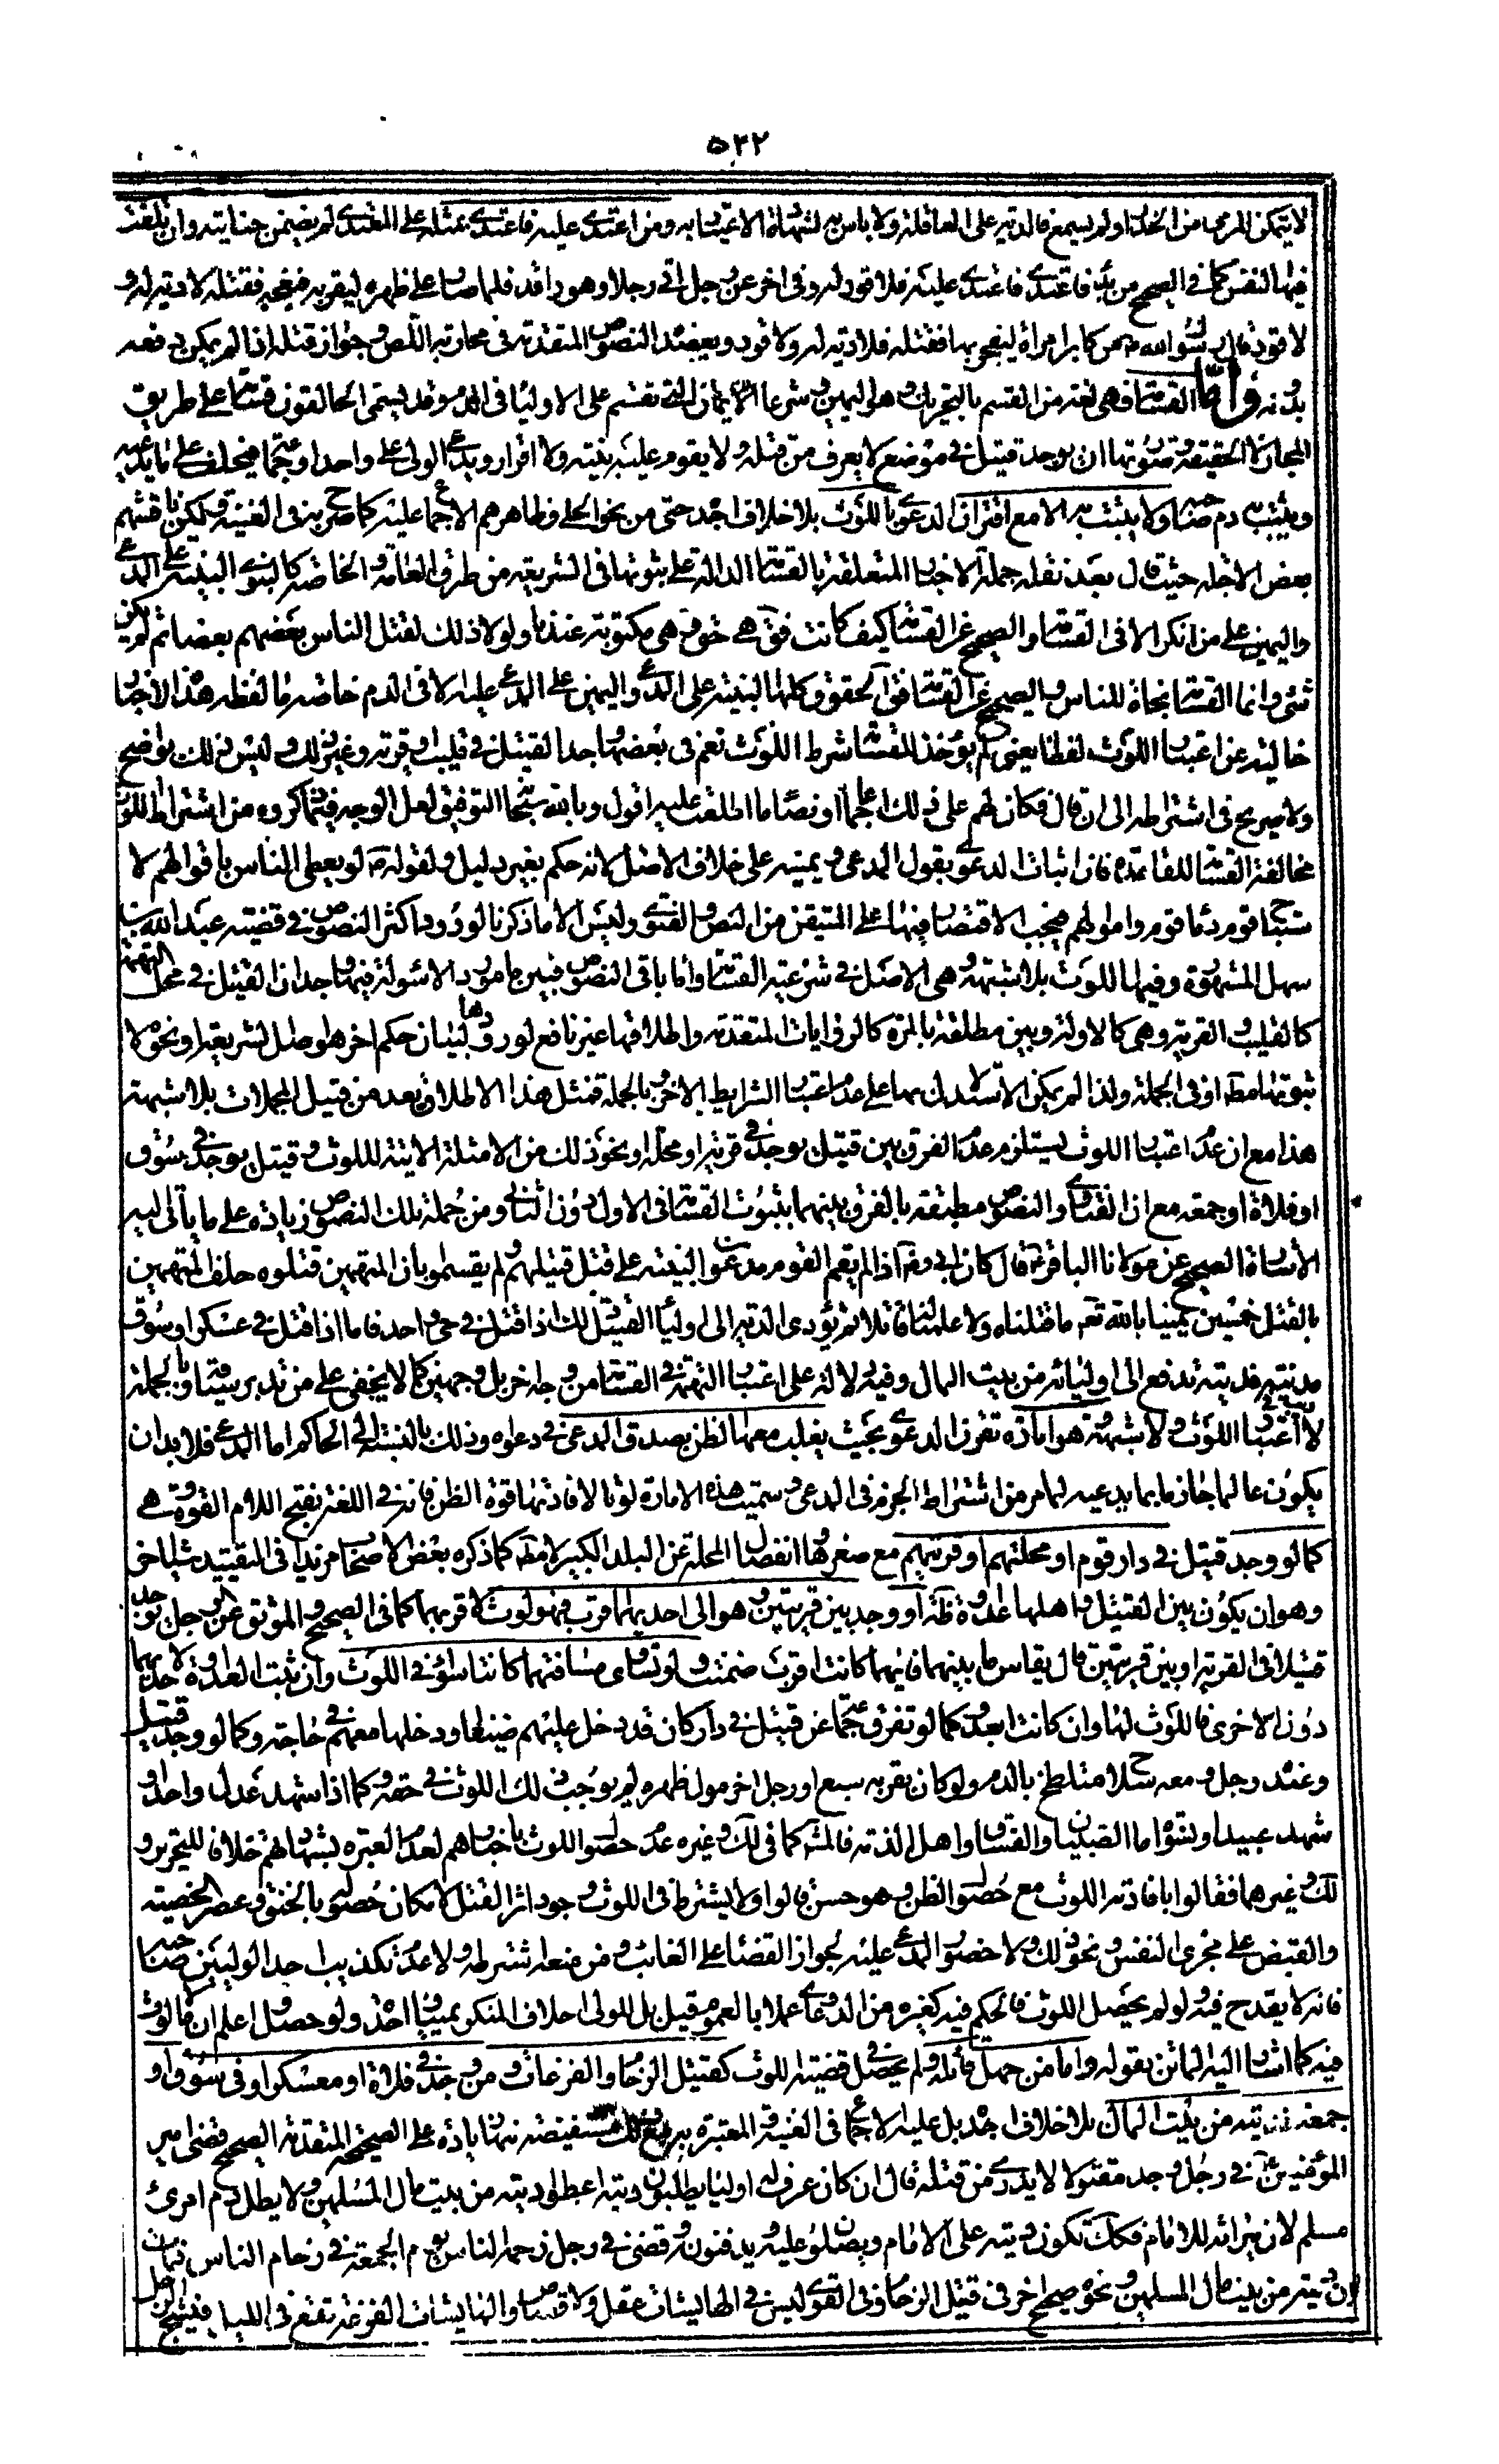 ٥٢٢
لا يتمكن المرمى من الحذر او لم يسمع فالدية على العاقلة ولا باس به لشهادة الاعتبار به ومن اعتدى عليه فاعتدى بمثله على المعتدى لم يضمن جنايته وان تلفت
فيها النفس كما في الصحيح من بدأ فاعتدى فاعتدى عليه فلا قود له وفي اخر عن رجل اتى رجلا وهو راقد فلما صار على ظهره ليقر به فقتله لا دية له و
لا قود قال رسول الله ص من كابر امرأة ليفجر بها فقتلته فلا دية له ولا قود ويعضد النصوص المتقدمة في محاربة اللص وجواز قتله اذا لم يمكن دفعه
بدونه واما القسامة فهي لغة من القسم بالتحريك وهو اليمين وشرعا الايمان التي تقسم على الاولياء في الدم وقد يسمى الحالفون قسامة على طريق
المجاز لا الحقيقة وصورتها ان يوجد قتيل في موضع لا يعرف من قتله ولا يقوم عليه بينة ولا اقرار ويدعى الولى على واحد او جماعة فيحلف على ما يدعيه
ويثبت به دم صاحبه ولا يثبت به الا مع اقتران الدعوى باللوث بلا خلاف اجده حتى من نحو الحلى وظاهرهم الاجماع عليه كما صرح به في الغنية ولكن ناقشهم
بعض الاجلة حيث قال بعد نقله جملة الاخبار المتعلقة بالقسامة الدالة على ثبوتها في الشريعة من طرق العامة والخاصة كالنبوى البينة على المدعى
واليمين على من انكر الا في القسامة والصحيح عن القسامة كيف كانت فق هي حق وهى مكتوبة عندنا ولولا ذلك لقتل الناس بعضهم بعضا ثم لم يكن
شئ وانما القسامة نجاة للناس والصحيح عن القسامة فق الحقوق كلها البينة على المدعى واليمين على المدعى عليه الا في الدم خاصة ما لفظه هذه الاخبار
خالية عن اعتبار اللوث لفظا يعنى لم يؤخذ للقسامة شرط اللوث نعم في بعضها وجد القتيل في قليب او قرية وغير ذلك وليس ذلك بواضح
ولا صريح في اشتراطه الى ان قال فكان لهم على ذلك اجماعا او نصا ما اطلعت عليه اقول وبالله سبحانه التوفيق لعل الوجه فيما ذكروه من اشتراط اللوث
مخالفة القسامة للقاعدة فان اثبات الدعوى بقول المدعى ويمينه على خلاف الاصل لانه حكم بغير دليل ولقوله ص لو يعطى الناس باقوالهم لا
ستباح قوم دماء قوم واموالهم فيجب الاقتصار فيها على المتيقن من النص والفتوى وليس الا ما ذكرنا لورود اكثر النصوص في قضية عبد الله بن
سهل المشهورة وفيها اللوث بلا شبهة وهى الاصل في شرعية القسامة واما باقى النصوص فبين ما مورد الاسولة فيها وجدان القتيل في محل التهمة
كالقليب والقرية وهى كالاولة وبين مطلقة بالمرة كالروايات المتقدمة واطلاقها غير نافع لورودها لبيان حكم اخر هو اصل الشريعة او نحوه لا
ثبوتها مطلقا او في الجملة ولذا لم يمكن الاستدلال بها على عدم اعتبار الشرايط الاخر وبالجملة فمثل هذا الاطلاق بعد من قبيل المجملات بلا شبهة
هذا مع ان عدم اعتبار اللوث يستلزم عدم الفرق بين قتيل يوجد في قرية او محلة او نحو ذلك من الامثلة الاتية للوث وقتيل يوجد في سوق
او فلاة او جمعة مع ان الفتاوى والنصوص مطبقة بالفرق بينهما بثبوت القسامة في الاول دون الثانى ومن جملة تلك النصوص زيادة على ما ياتى اليه
الاشارة الصحيح عن مولانا الباقر ع قال كان ابى ره اذا لم يقم القوم المدعون البينة على قتل قتيلهم ولم يقسموا بان المتهمين قتلوه حلف المتهمين
بالقتل خمسين يمينا بالله تعالى ما قتلناه ولا علمنا قاتلا ثم تؤدى الدية الى اولياء القتيل ذلك اذا قتل في حى واحد فاما اذا قتل في عسكر او سوق
مدينة فديته تدفع الى اوليائه من بيت المال وفيه دلالة على اعتبار التهمة في القسامة من وجه اخر بل وجهين كما لا يخفى على من تدبر سياقه وبالجملة
لا ريب في اعتبار اللوث ولا شبهة وهو امارة تقرن الدعوى بحيث يغلب معها الظن بصدق المدعى في دعواه وذلك بالنسبة الى الحاكم اما المدعى فلا بد ان
يكون عالما جازما بما يدعيه لما مر من اشتراط الجزم في المدعى وسميت هذه الامارة لوثا لافادتها قوة الظن فانه في اللغة بفتح اللام القوة وهى
كما لو وجد قتيل في دار قوم او محلتهم او قريتهم مع صغرها وانفصال المحلة عن البلد الكبير لا مطلقا كما ذكره بعض الاصحاب مزيدا في التقييد شيئا اخر
وهو ان يكون بين القتيل واهلها عداوة ظاهرة او وجد بين قريتين وهو الى احديهما اقرب فهو لوث لاقربهما كما في الصحيح والموثق عن الرجل يوجد
قتيلا في القرية او بين قريتين قال يقاس ما بينهما فايهما كانت اقرب ضمنت ولو تساوى مسافتهما كانتا سواء في اللوث وان ثبت العداوة لاحديهما
دون الاخرى فاللوث لها وان كانت ابعد وكما لو تفرق جماعة عن قتيل في دار كان قد دخل عليهم ضيفا او دخلها معهم في حاجة وكما لو وجد قتيل
وعنده رجل ومعه سلاح متلطخ بالدم ولو كان بقربه سبع او رجل اخر مول ظهره لم يوجب ذلك اللوث في حقه وكما اذا شهد عدل واحد او
شهد عبيد او نسوة اما الصبيان والفساق او اهل الذمة فالمشهور كما في لك وغيره عدم حصول اللوث باخبارهم لعدم العبرة بشهادتهم خلافا للتحرير و
لك وغيرهما فقالوا بافادته اللوث مع حصول الظن وهو حسن قالوا ولا يشترط في اللوث وجود اثر القتل لامكان حصوله بالخنق وعصر الخصية
والقبض على مجرى النفس ونحو ذلك ولا حضور المدعى عليه لجواز القضاء على الغائب ومن منعه اشترطه ولا عدم تكذيب احد الوليين صاحبه
فانه لا يقدح فيه ولو لم يحصل اللوث فالحكم فيه كغيره من الدعاوى عملا بالعموم وقيل بل للولى احلاف المنكر يمينا واحدة ولو حصل واعلم ان ما لا لوث
فيه كما اشار اليه الماتن بقوله واما من جهل قاتله ولم يحصل في قضيته اللوث كقتيل الزحام والفزعات ومن وجد في فلاة او معسكر او في سوق او
جمعة فديته من بيت المال بلا خلاف اجده بل عليه الاجماع في الغنية والمعتبرة به مع ذلك مستفيضة زيادة على الصحيحة المتقدمة الصحيح قضى امير
المؤمنين ع في رجل وجد مقتولا لا يدرى من قتله قال ان كان عرف له اولياء يطلبون ديته اعطوا ديته من بيت مال المسلمين ولا يطل دم امرئ
مسلم لان ميراثه للامام فكذلك تكون ديته على الامام ويصلون عليه ويدفنونه وقضى في رجل زحمه الناس يوم الجمعة في زحام الناس فمات
ان ديته من بيت مال المسلمين ونحوه صحيح اخر في قتيل الزحام وفي القوى ليس في الهايشات عقل ولا قصاص والهايشات الفزعة تقع في الليل فيشج الرجل